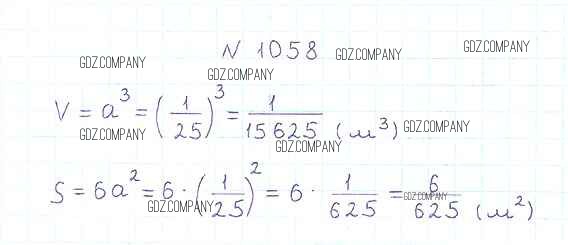 N 1058
GDZ.COMPANY
GDZ.COMPANY
GDZ.COMPANY
GDZ.COMPANY
V = a³ = (1/25)³ = 1/15625 (м³)
GDZ.COMPANY
GDZ.COMPANY
GDZ.COMPANY
S = 6a² = 6 · (1/25)² = 6 · 1/625 = 6/625 (м²)
GDZ.COMPANY
GDZ.COMPANY